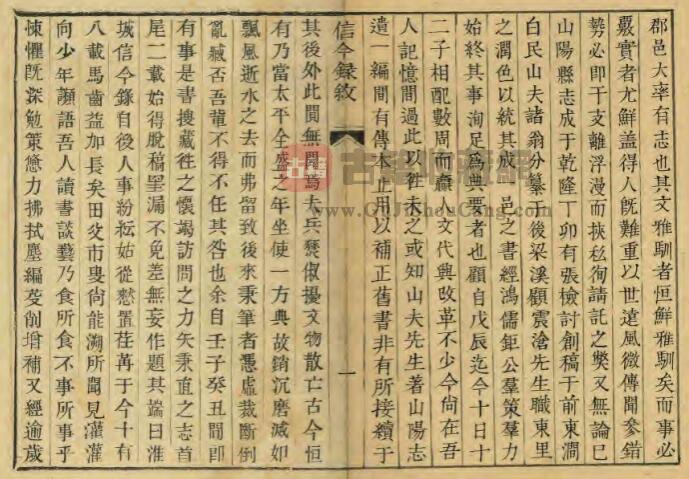 郡邑大率有志也其文雅馴者恒鮮雅馴矣而事必
覈實者尤鮮蓋得人既難重以世遠風微傳聞參錯
勢必即于支離浮漫而挾私徇請託之獘又無論已
山陽縣志成于乾隆丁卯有張檢討創稿于前東澗
白民山夫諸翁分纂于後梁溪顧震滄先生職東里
之潤色以統其成一邑之書經鴻儒鉅公羣策羣力
始終其事洵足為典要者也顧自戊辰迄今十日十
二子相配數周而贏人文代興改革不少今尚在吾
人記憶間過此以往未之或知山夫先生著山陽志
遺一編間有傳本止用以補正舊書非有所接續于
信今錄敘
一
其後外此闃無聞焉夫兵燹俶擾文物散亡古今恒
有乃當太平全盛之年坐使一方典故銷沉磨滅如
飄風逝水之去而弗留致後來秉筆者憑虛裁斷倒
亂臧否吾輩不得不任其咎也余自壬子癸丑間即
有事是書搜藏往之懷竭訪問之力矢秉直之志首
尾二載始得脫稿罣漏不免差無妄作題其端曰淮
城信今錄自後人事紛紜姑從憖置荏苒于今十有
八載馬齒益加長矣田夋市叟尚能溯所聞見灌灌
向少年頲語吾人讀書談藝乃食所食不事所事乎
悚懼既深勉策憊力拂拭塵編芟削增補又經逾歲
古籍收藏網
www.GuJiShouCang.com